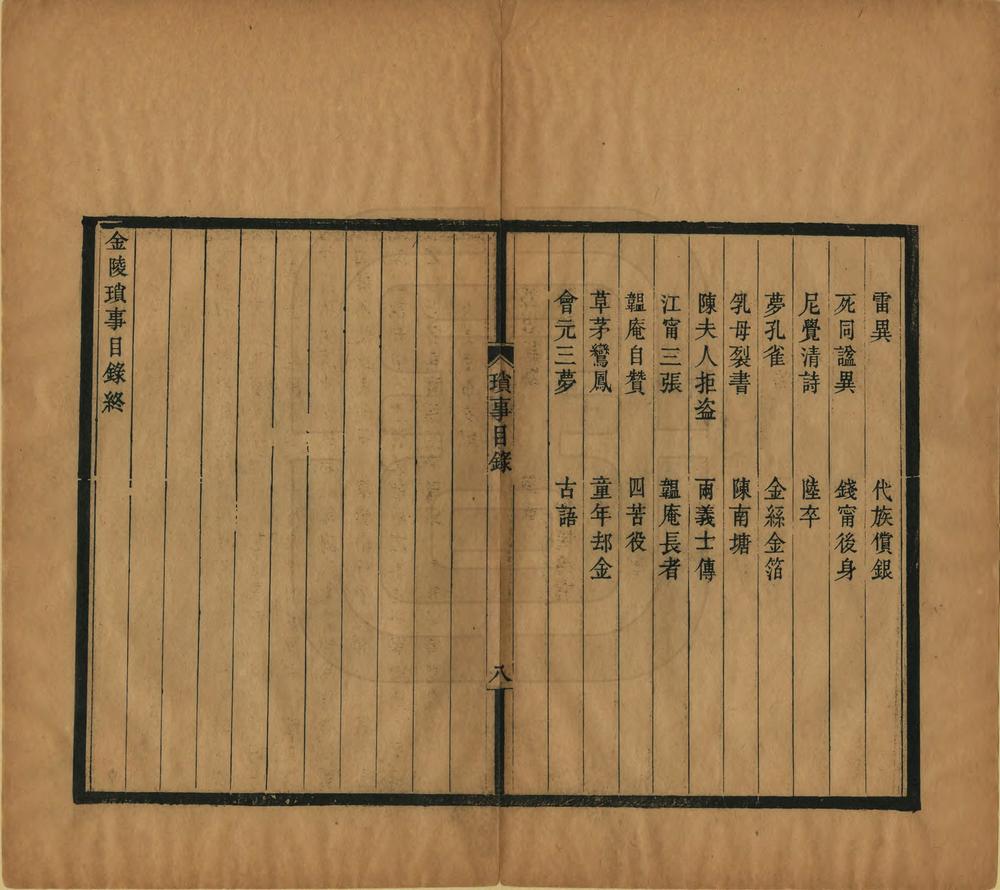 雷異　代族償銀
死同謚異　錢甯後身
尼覺清詩　陸卒
夢孔雀　金絲金箔
乳母裂書　陳南塘
陳夫人拒盜　兩義士傳
江甯三張　韞庵長者
韞庵自贊　四苦役
草茅鸞鳳　童年却金
會元三夢　古語
瑣事目錄　八
金陵瑣事目錄終